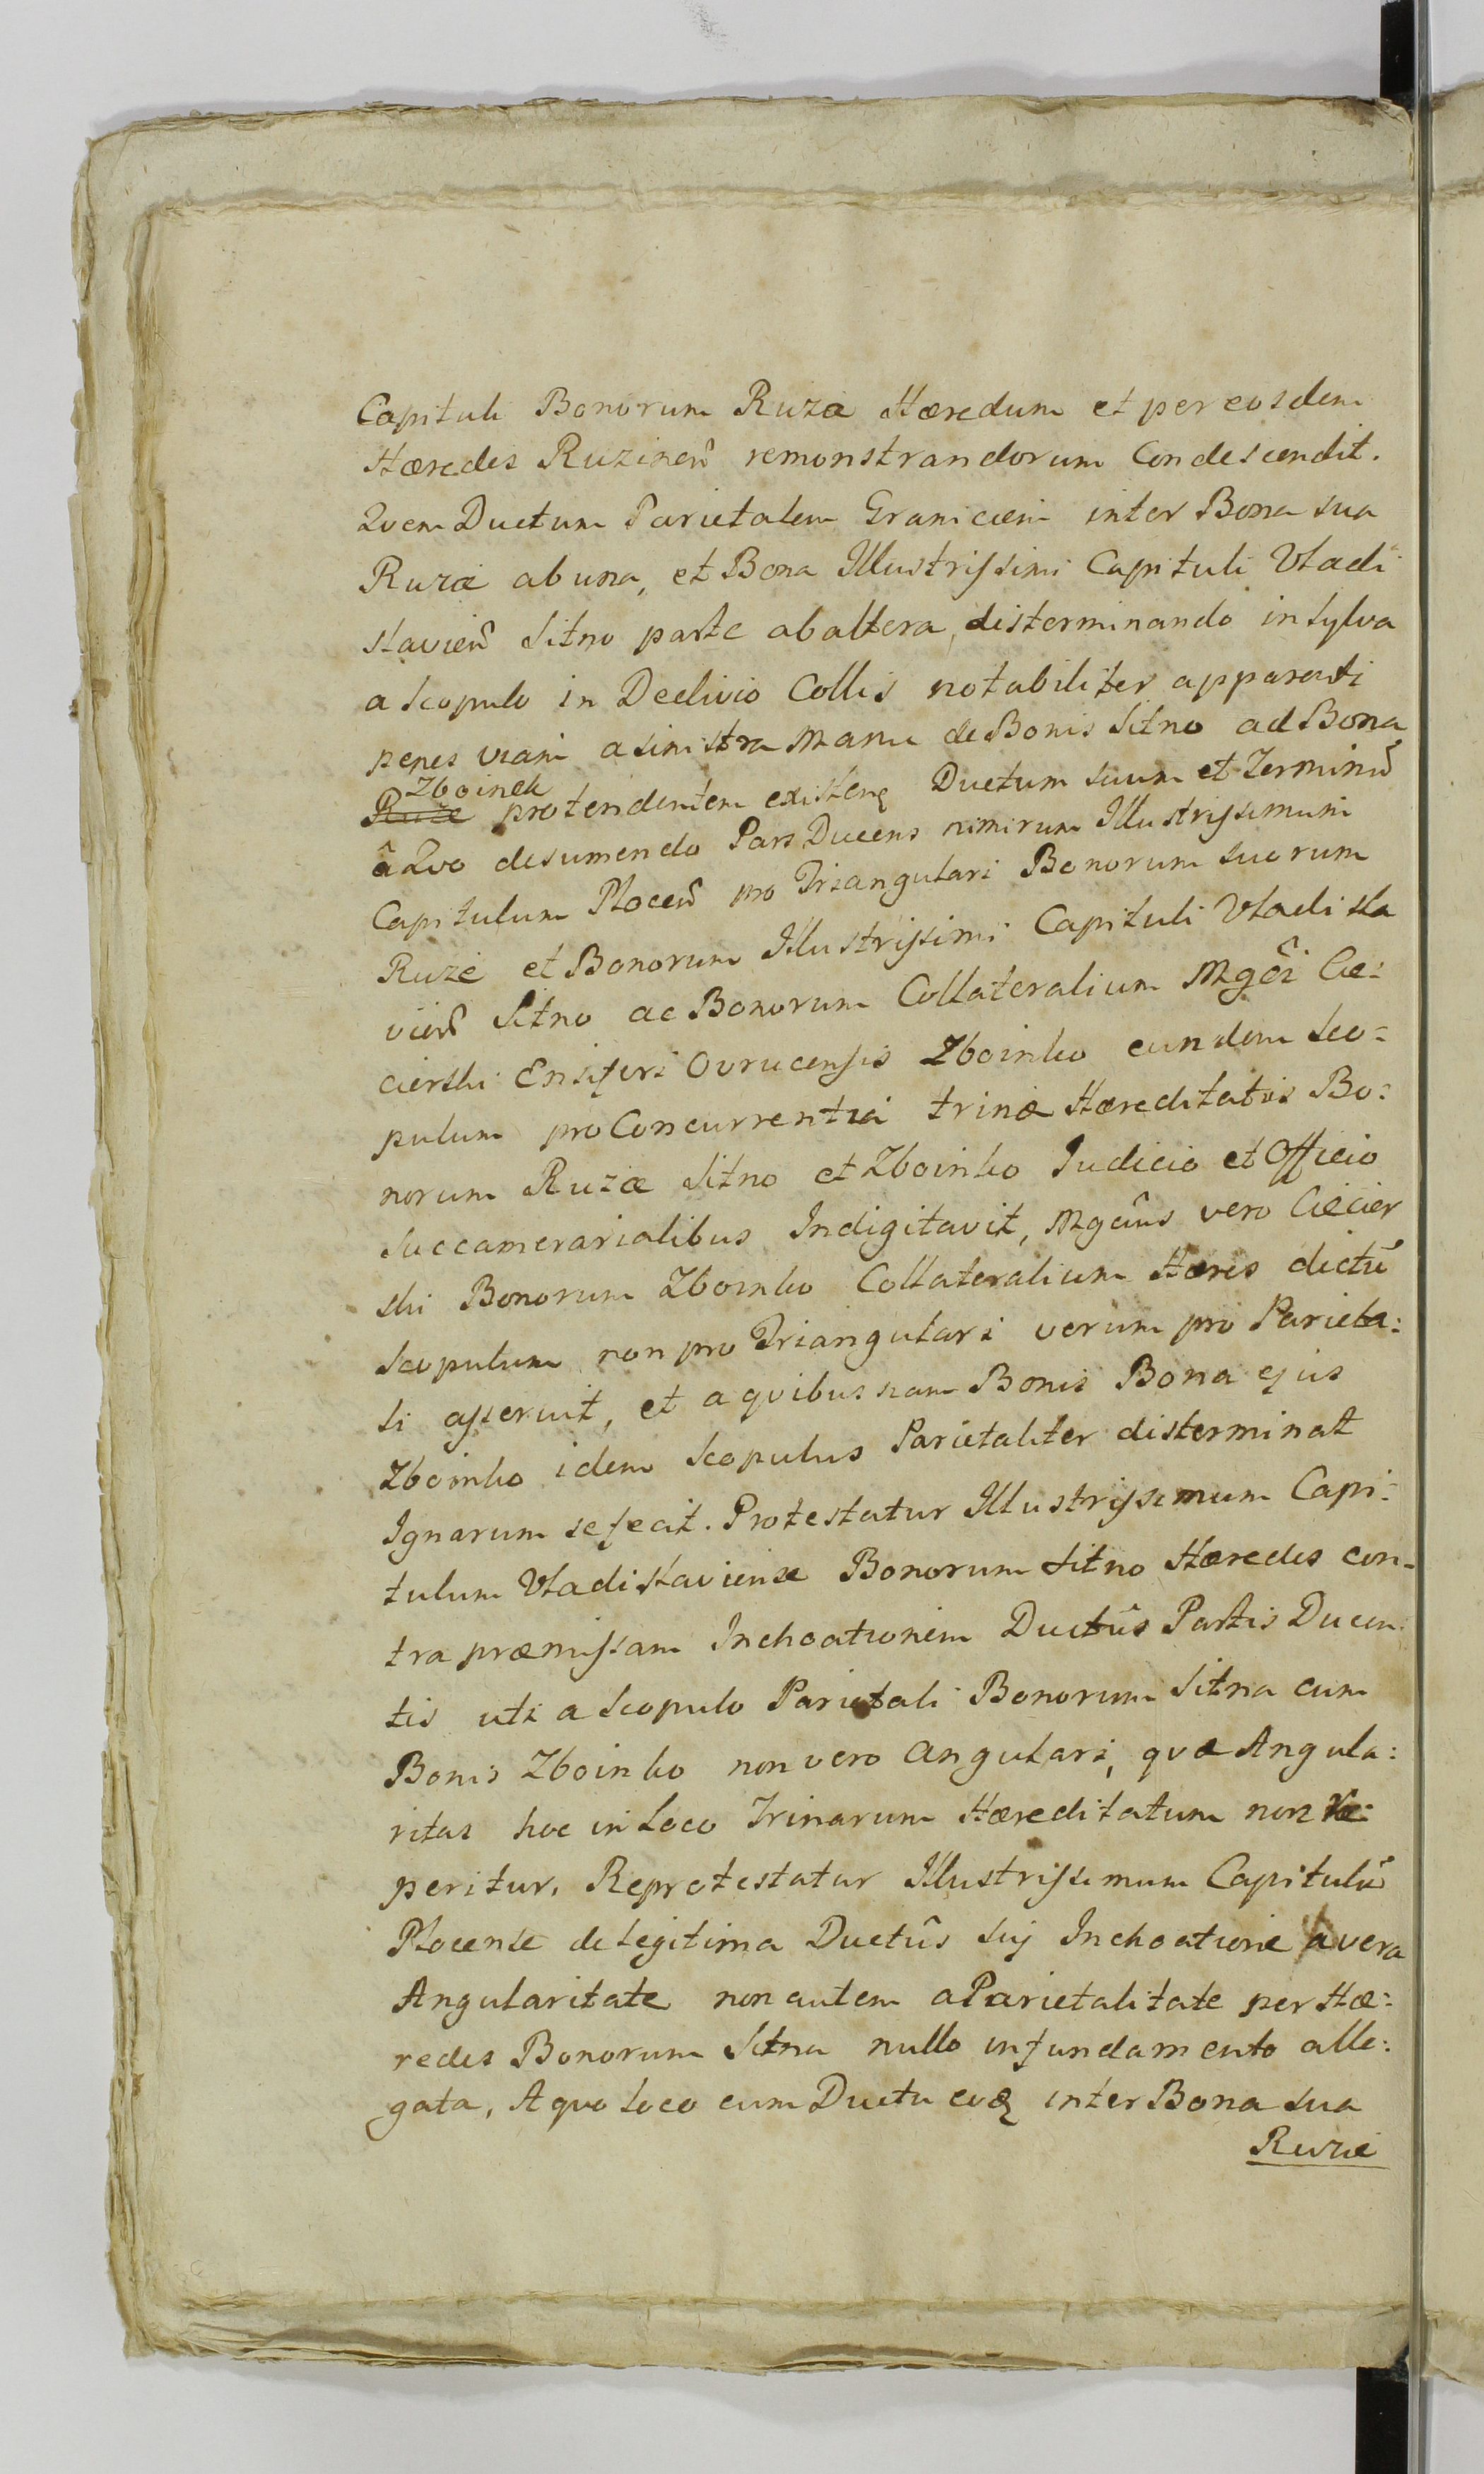 Capituli Bonorum Ruzæ Hæredum et per eosdem
Hæredes Ruzinen̄ remonstrandorum Condescendit.
Quem Ductum Parietalem Granicæm inter Bona sua
Ruzæ ab una, et Bona Illustrissimi Capituli Vladi
slavien̄ Sitno parte ab altera, disterminando in Sylva
a Scopulo in Declivio Collis notabiliter apparenti
penes viam a sinistra Manu de Bonis Sitno ad Bona
Zboinek
Ruze protendentem existenę Ductum suum et Terminū
â Quo desumendo Pars Ducens nimirum Illustrissimum
Capitulum Plocen̄ pro Triangulari Bonorum suorum
Ruze et Bonorum Illustrissimi Capituli Vladisla
vien̄ Sitno ac Bonorum Collateralium Mgci Cie:
cierski Ensiferi Ovrucensis Zboinko eundem Sco:
pulum pro Concurrentia trinæ Hæreditatis Bo:
norum Ruzæ Sitno et Zboinko Judicio et Officio
Succamerarialibus Indigitavit, Mgcus vero Ciecier
ski Bonorum Zboinko Collateralium Hæres dictū
Scopulum non pro Triangulari verum pro Parieta:
li asseruit, et a quibusnam Bonis Bona ejus
Zboinko idem Scopulus Parietaliter disterminat
Ignarum se fecit. Protestatur Illustrissimum Capi:
tulum Vladislaviense Bonorum Sitno Hæredes con-
tra præmissam Inchoationem Ductûs Partis Ducen
tis uti a Scopulo Parietali Bonorum Sitna cum
Bonis Zboinko non vero Angulari, quæ Angula:
ritas hoc in Loco Trinarum Hæreditatum non re:
peritur. Reprotestatur Illustrissimum Capitulū
Plocense de legitima Ductûs sui Inchoatione a vera
Angularitate non autem a Parietalitate per Hæ:
redes Bonorum Sitna nullo in fundamento alle:
gata, A quo loco cum Ductu eoq inter Bona sua
Ruzæ